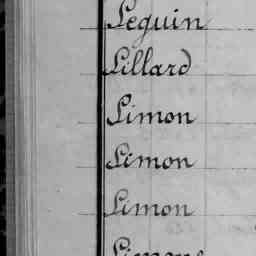 Leguin
Lillard
Limon
Limon
Limon